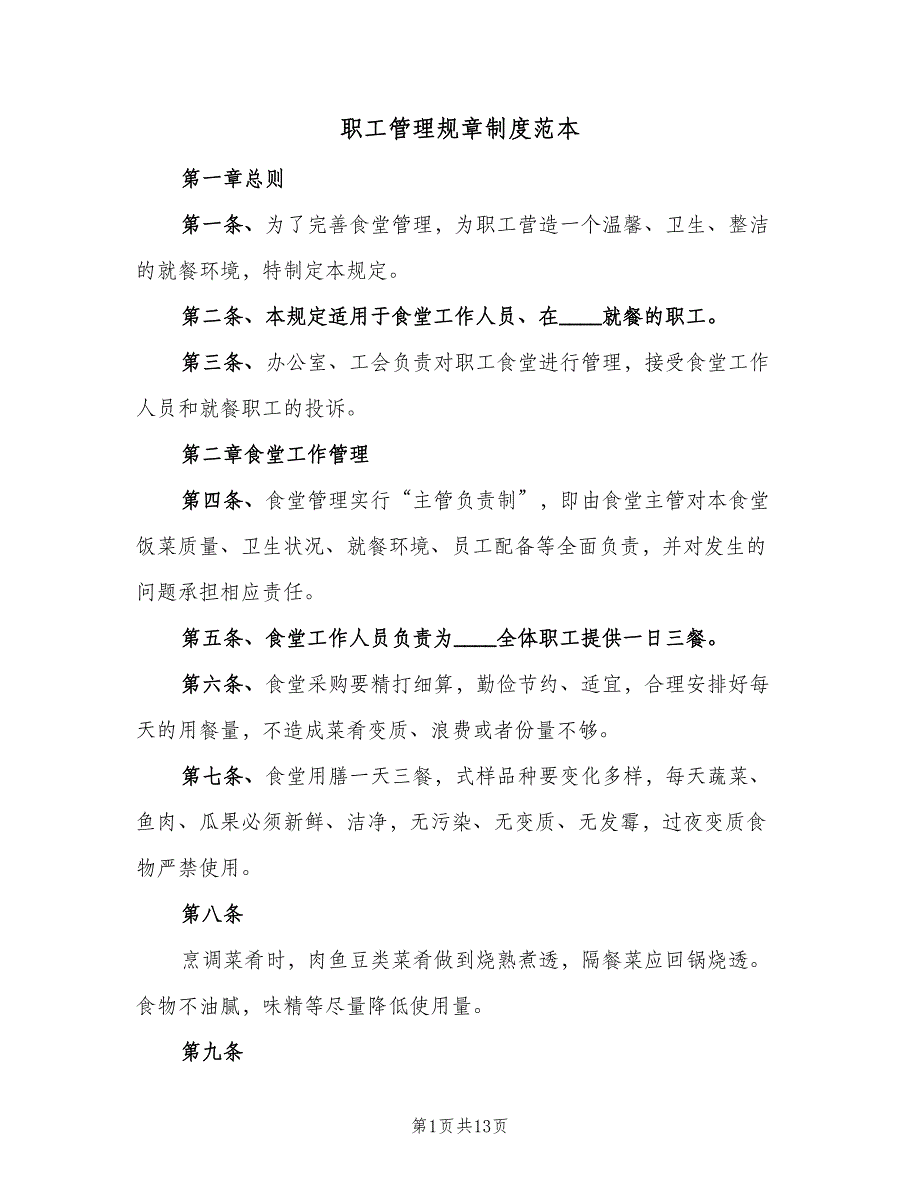 职工管理规章制度范本
第一章总则
第一条、为了完善食堂管理，为职工营造一个温馨、卫生、整洁
的就餐环境，特制定本规定。
第二条、本规定适用于食堂工作人员、在____就餐的职工。
第三条、办公室、工会负责对职工食堂进行管理，接受食堂工作
人员和就餐职工的投诉。
第二章食堂工作管理
第四条、食堂管理实行“主管负责制”，即由食堂主管对本食堂
饭菜质量、卫生状况、就餐环境、员工配备等全面负责，并对发生的
问题承担相应责任。
第五条、食堂工作人员负责为____全体职工提供一日三餐。
第六条、食堂采购要精打细算，勤俭节约、适宜，合理安排好每
天的用餐量，不造成菜肴变质、浪费或者份量不够。
第七条、食堂用膳一天三餐，式样品种要变化多样，每天蔬菜、
鱼肉、瓜果必须新鲜、洁净，无污染、无变质、无发霉，过夜变质食
物严禁使用。
第八条
烹调菜肴时，肉鱼豆类菜肴做到烧熟煮透，隔餐菜应回锅烧透。
食物不油腻，味精等尽量降低使用量。
第九条
第1页共13页